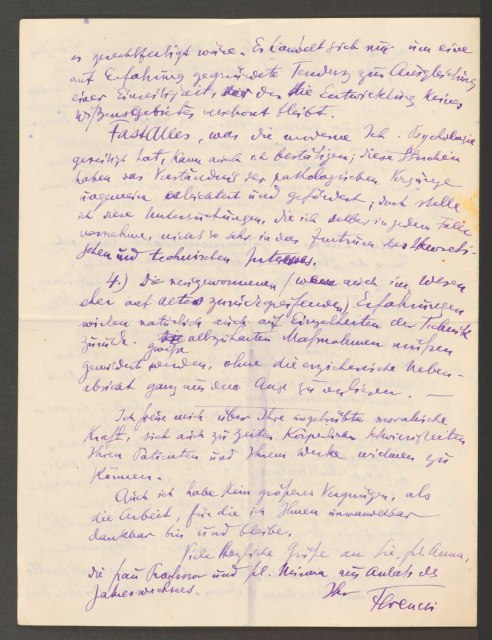 es gerechtfertigt wäre. Es handelt sich nur um eine
auf Erfahrung gegründete Tendenz zur Ausgleichung
einer Einseitigkeit, von der die Entwicklung keines
Wissensgebietes verschont bleibt.
Fast Alles, was die moderne Ich-Psychologie
gezeitigt hat, kann auch ich bestätigen; diese Studien
haben das Verständnis der pathologischen Vorgänge
ungemein erleichtert und gefördert; doch stelle
ich diese Untersuchungen, die ich selber in jedem Falle
vornehme, nicht so sehr in das Zentrum des theoreti-
schen und technischen Interesses.
4.) Die neugewonnenen (wenn auch im Wesen
eher auf altes zurückgreifenden) Erfahrungen
wirken natürlich auch auf Einzelheiten der Technik
zurück. Gewisse allzuharten Maßnahmen müssen
gemildert werden, ohne die erzieherische Neben-
absicht ganz aus dem Auge zu verlieren. —
Ich freue mich über Ihre ungetrübte moralische
Kraft, sich auch zu Zeiten körperlicher Schwierigkeiten
Ihren Patienten und Ihrem Werke widmen zu
können.
Auch ich habe kein größeres Vergnügen, als
die Arbeit, für die ich Ihnen unwandelbar
dankbar bin und bleibe.
Viele herzliche Grüße an Sie, frl. Anna,
die Frau Professor und frl. Minna aus Anlaß des
Jahreswechsels. Ihr Ferenczi